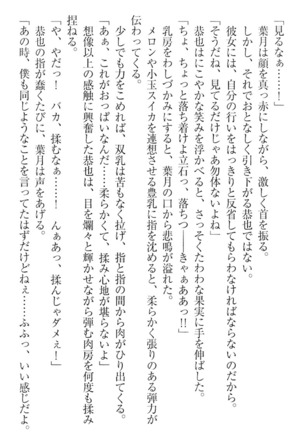 「見るなぁ………！」
　葉月は顔を真っ赤にしながら、激しく首を振る。
　しかし、それでおとなしく引き下がる恭也ではない。
　彼女には、自分の行いをはっきりと反省してもらわなければならないのだから。
「そうだね、見てるだけじゃあ勿体ないよね」
　恭也はにこやかな笑みを浮かべると、さっそくたわわな果実に手を伸ばした。
「ちょ、ちょっと落ち着けよ立石っ、落ちつ――きゃぁああっ!!」
　乳房をわしづかみにすると、葉月の口から悲鳴が溢れた。
　メロンや小玉スイカを連想させる豊乳に指を沈めると、柔らかく張りのある弾力が
伝わってくる。
　少しでも力をこめれば、双乳は苦もなく拉げ、指と指の間から肉がひり出てくる。
「あぁ、これがおっぱいなんだ……柔らかくて、揉み心地が堪らないよ」
　想像以上の感触に興奮した恭也は、目を爛々と輝かせながら弾む肉房を何度も揉み
捏ねる。
「や、やだっ！　バカ、揉むなぁ……！　んぁあっ、揉んじゃダメぇ！」
　恭也の指が蠢くたびに、葉月は声をあげる。
「あの時、僕も同じようなことを言ってたはずだけどねぇ……ふふっ、いい感じだよ。